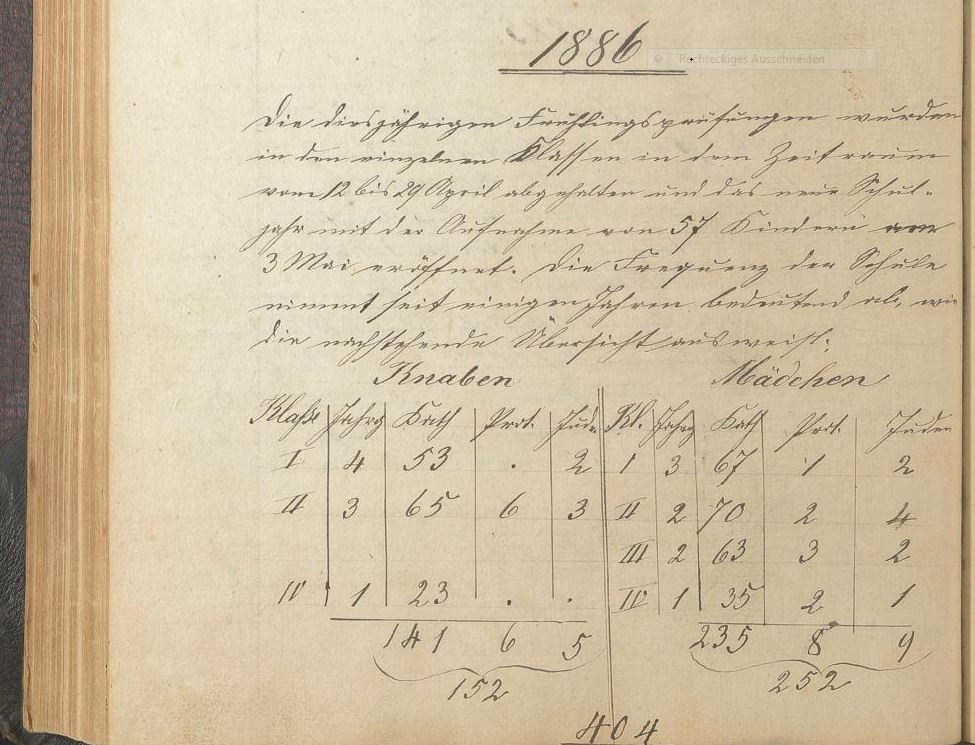 1886
Rechteckiges Ausschneiden
Die diesjährigen Frühlingsprüfungen wurden
in den einzelnen Klassen in dem Zeitraum
vom 12 bis 29 April abgehalten und das neue Schul-
jahr mit der Aufnahme von 57 Kindern am
3 Mai eröffnet. Die Frequenz der Schule
nimmt seit einigen Jahren bedeutend ab, wie
die nachstehende Übersicht ausweist:
Knaben Mädchen
Klaße Jahrg Kath Prot. Jud. Kl. Jahrg Kath Prot. Juden
I 4 53 . 2 I 3 67 1 2
II 3 65 6 3 II 2 70 2 4
III 2 63 3 2
IV 1 23 . . IV 1 35 2 1
141 6 5 235 8 9
152 252
404